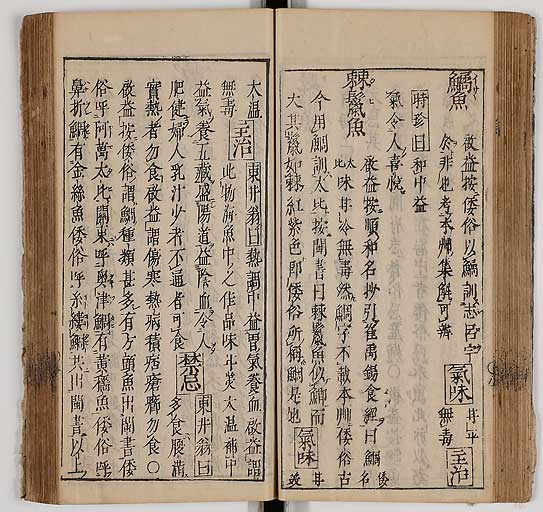 鱊魚 啟益按倭俗以鱊訓志呂宇
於非也考本艸集解可辨 氣味 甘平 無毒 主治
時珍曰和中益
氣令人喜悅
棘鬣魚 啟益按順和名抄引崔禹錫食經曰鯛
味甘冷無毒然鯛字不載本艸倭俗古
今用鯛訓太比按閩書曰棘鬣魚似鯽而
大其鬣如棘紅紫色即倭俗所稱鯛是也 氣味 甘
大溫
無毒 主治 東井翁曰熱調中益胃氣養血啟益謂
此物海魚中之佳品味甘美大溫補中
益氣養五藏盛陽道益陰血令人
肥健婦人乳汁少者不通者可食 禁忌 東井翁曰
多食
實熱者勿食啟益謂傷寒熱病積痞瘡癤勿食○
啟益按倭俗謂鯛種類甚多有方頭魚出閩書倭
俗呼阿萬太比關東呼興津鯛有黃穡魚倭俗呼
鼻折鯛有金絲魚倭俗呼糸縷鯛共出閩書以上